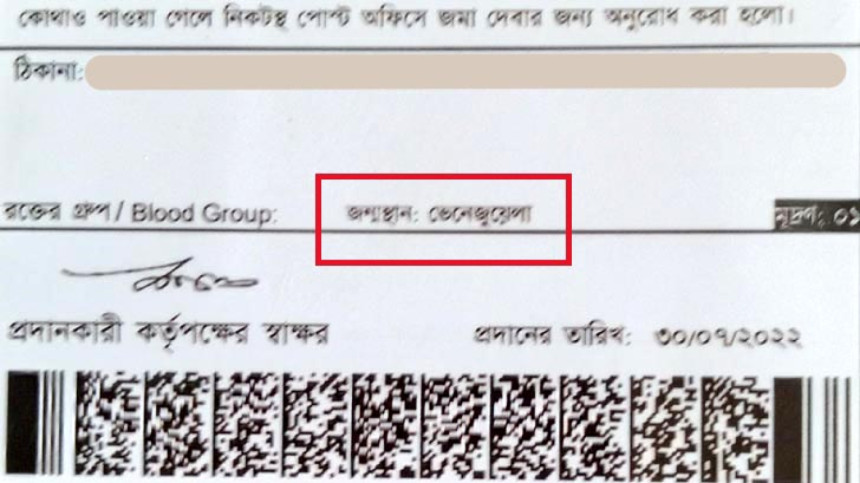 কোথাও পাওয়া গেলে নিকটস্থ পোস্ট অফিসে জমা দেবার জন্য অনুরোধ করা হলো।
ঠিকানা:
রক্তের গ্রুপ / Blood Group: জন্মস্থান: ভেনেজুয়েলা মুদ্রণ: ০১
প্রদানকারী কর্তৃপক্ষের স্বাক্ষর প্রদানের তারিখ: ৩০/০৭/২০২২